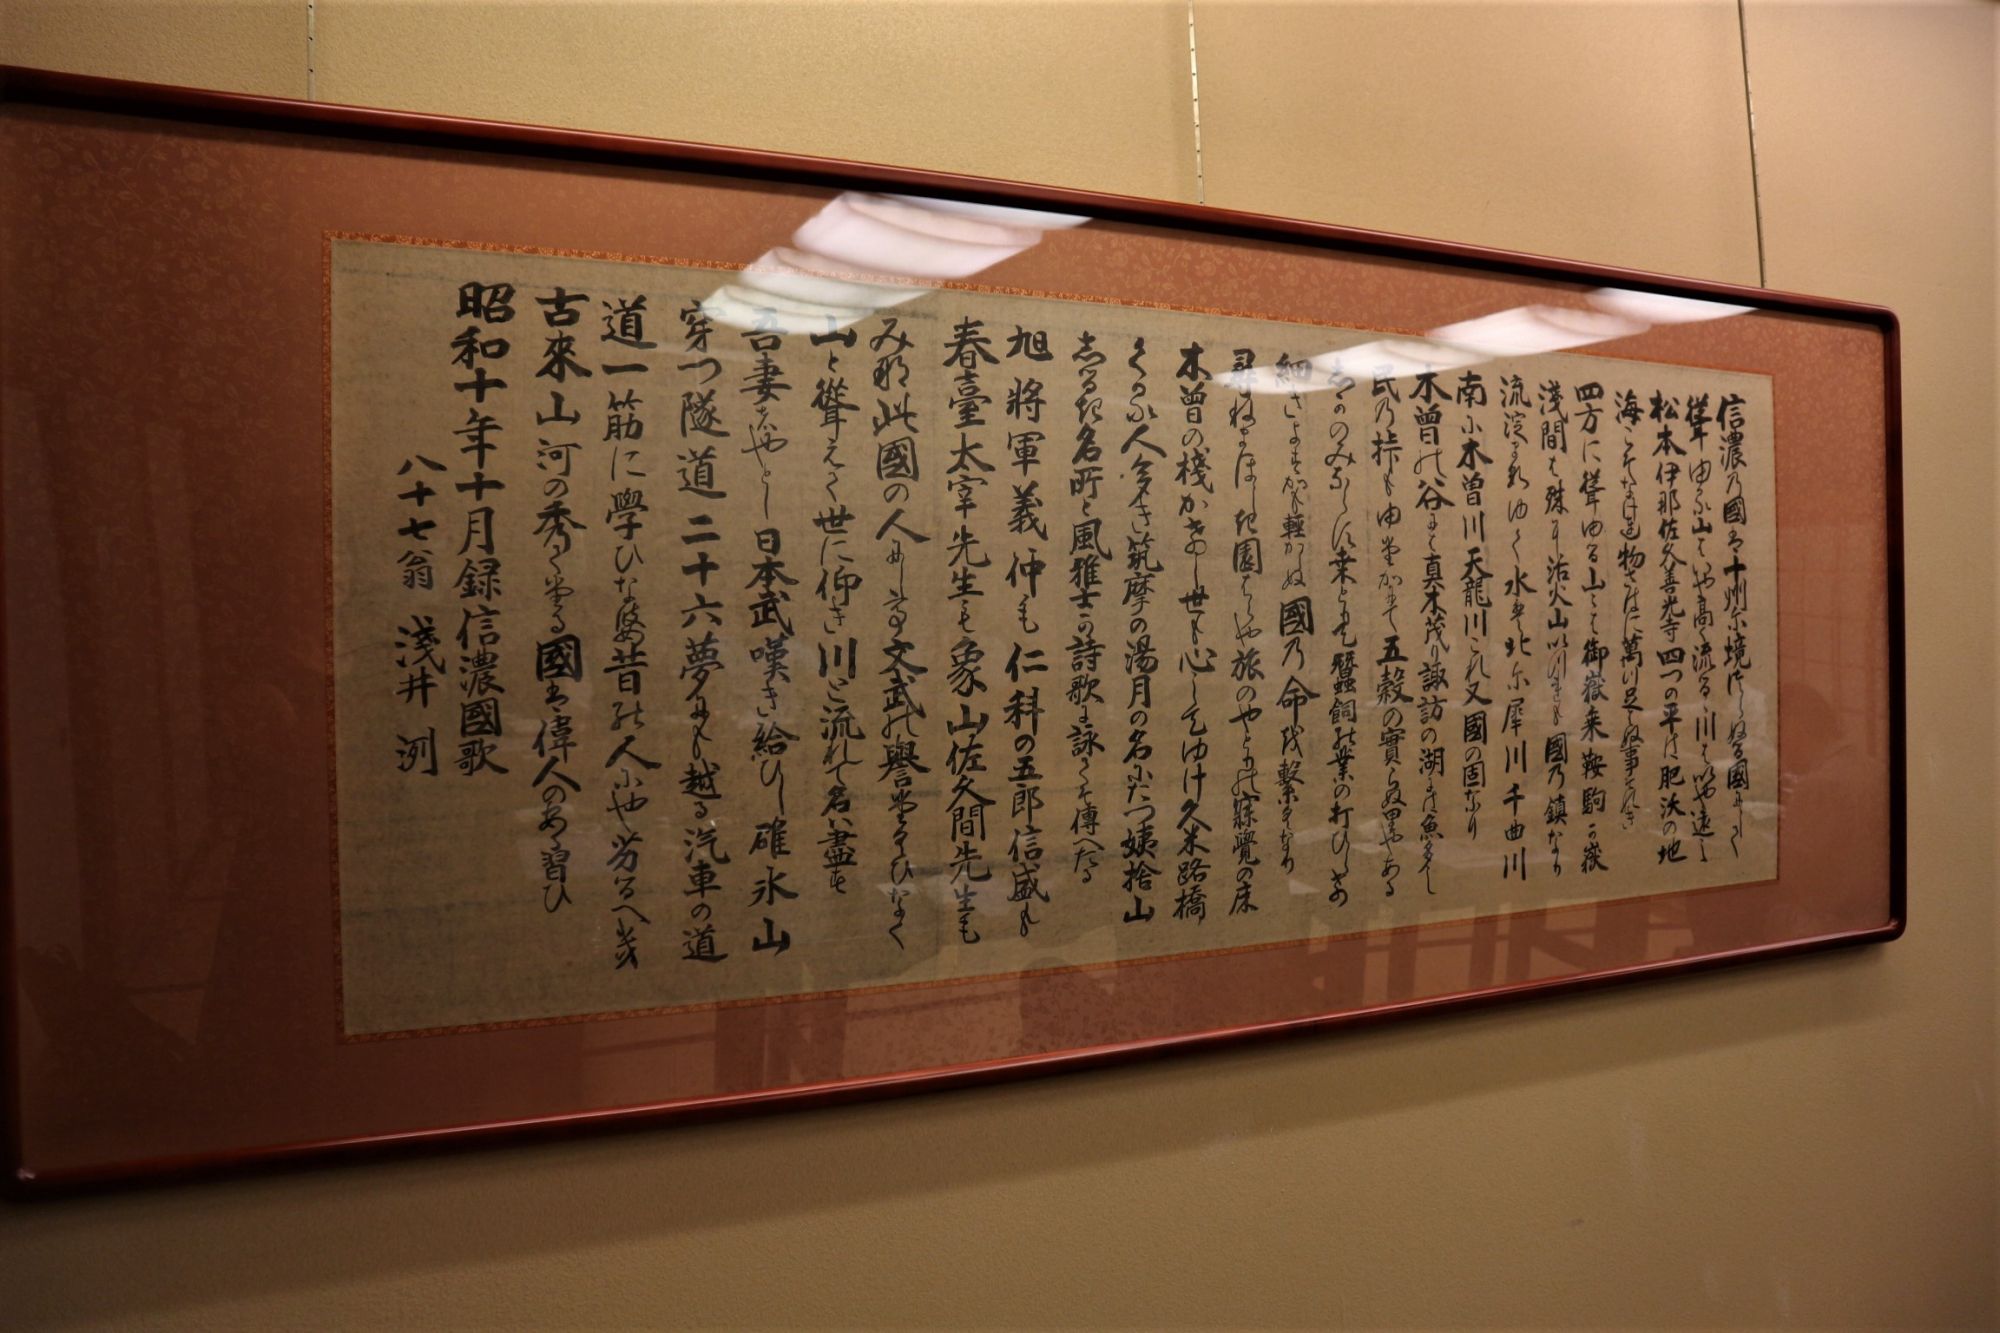 信濃乃國ハ十州尓境川らぬる國尓し天
聳ゆる山はいや高く流るゝ川はいや遠し
松本伊那佐久善光寺四つの平は肥沃の地
海こそなけれ物さはに萬川足らぬ事そ那き
四方に聳ゆる山々は御嶽乗鞍駒ヶ嶽
淺間は殊に活火山いつれも國乃鎮なり
流淀まれゆく水は北尓犀川千曲川
南尓木曽川天龍川これ又國の固なり
木曽の谷には真木茂り諏訪の湖には魚多し
民乃もゆたかにて五穀の實らぬ里やある
しかのみならす桑とりて蠶飼の業の打ひらけ
細きよすかも輕からぬ國乃命を繋くなり
尋ねまほしき園はらや旅のやとりの寐覺の床
木曽の棧かけし世も心してゆけ久米路橋
くる人多き筑摩の湯月の名にたつ姨捨山
しるき名所と風雅士か詩歌に詠てそ傳へたる
旭將軍義仲も仁科の五郎信盛も
春臺太宰先生も象山佐久間先生も
みな此國の人にして文武の譽たくひなく
山と聳えて世に仰き川と流れて名ハ盡す
吾妻はやとし日本武嘆き給ひし碓氷山
穿つ隧道二十六夢にも越る汽車の道
道一筋に學ひなは昔の人にや劣るへき
古來山河の秀てたる國は偉人のある習ひ
昭和十年十月録信濃國歌
八十七翁 淺井洌